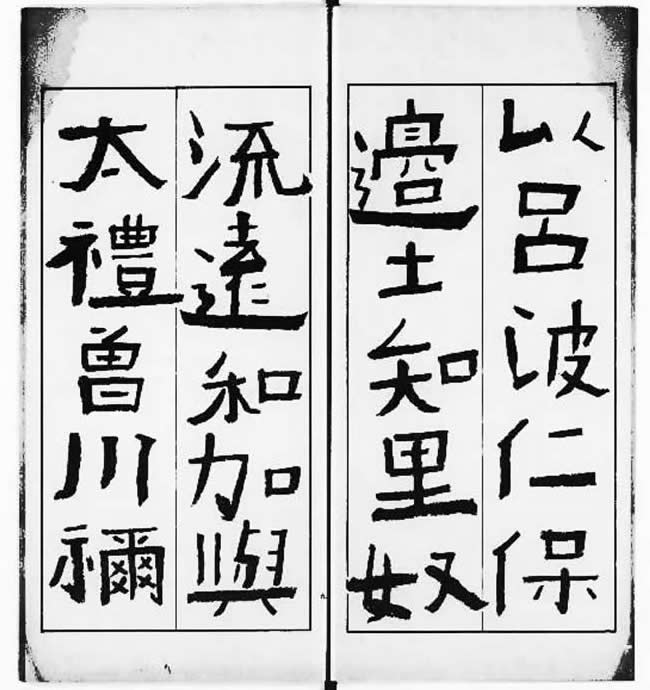 以呂波仁保
邉土知里奴
流遠和加與
太禮曽川禰